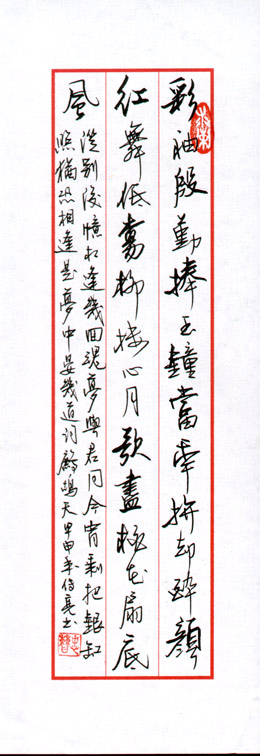 彩袖段勤捧玉鐘當年拚却醉顔
紅舞低楊柳樓心月歌盡桃花扇底
風
從别後憶相逢幾回魂夢與君同今宵剩把銀缸
照猶恐相逢是夢中晏幾道詞鷓鴣天甲申年伯亮书